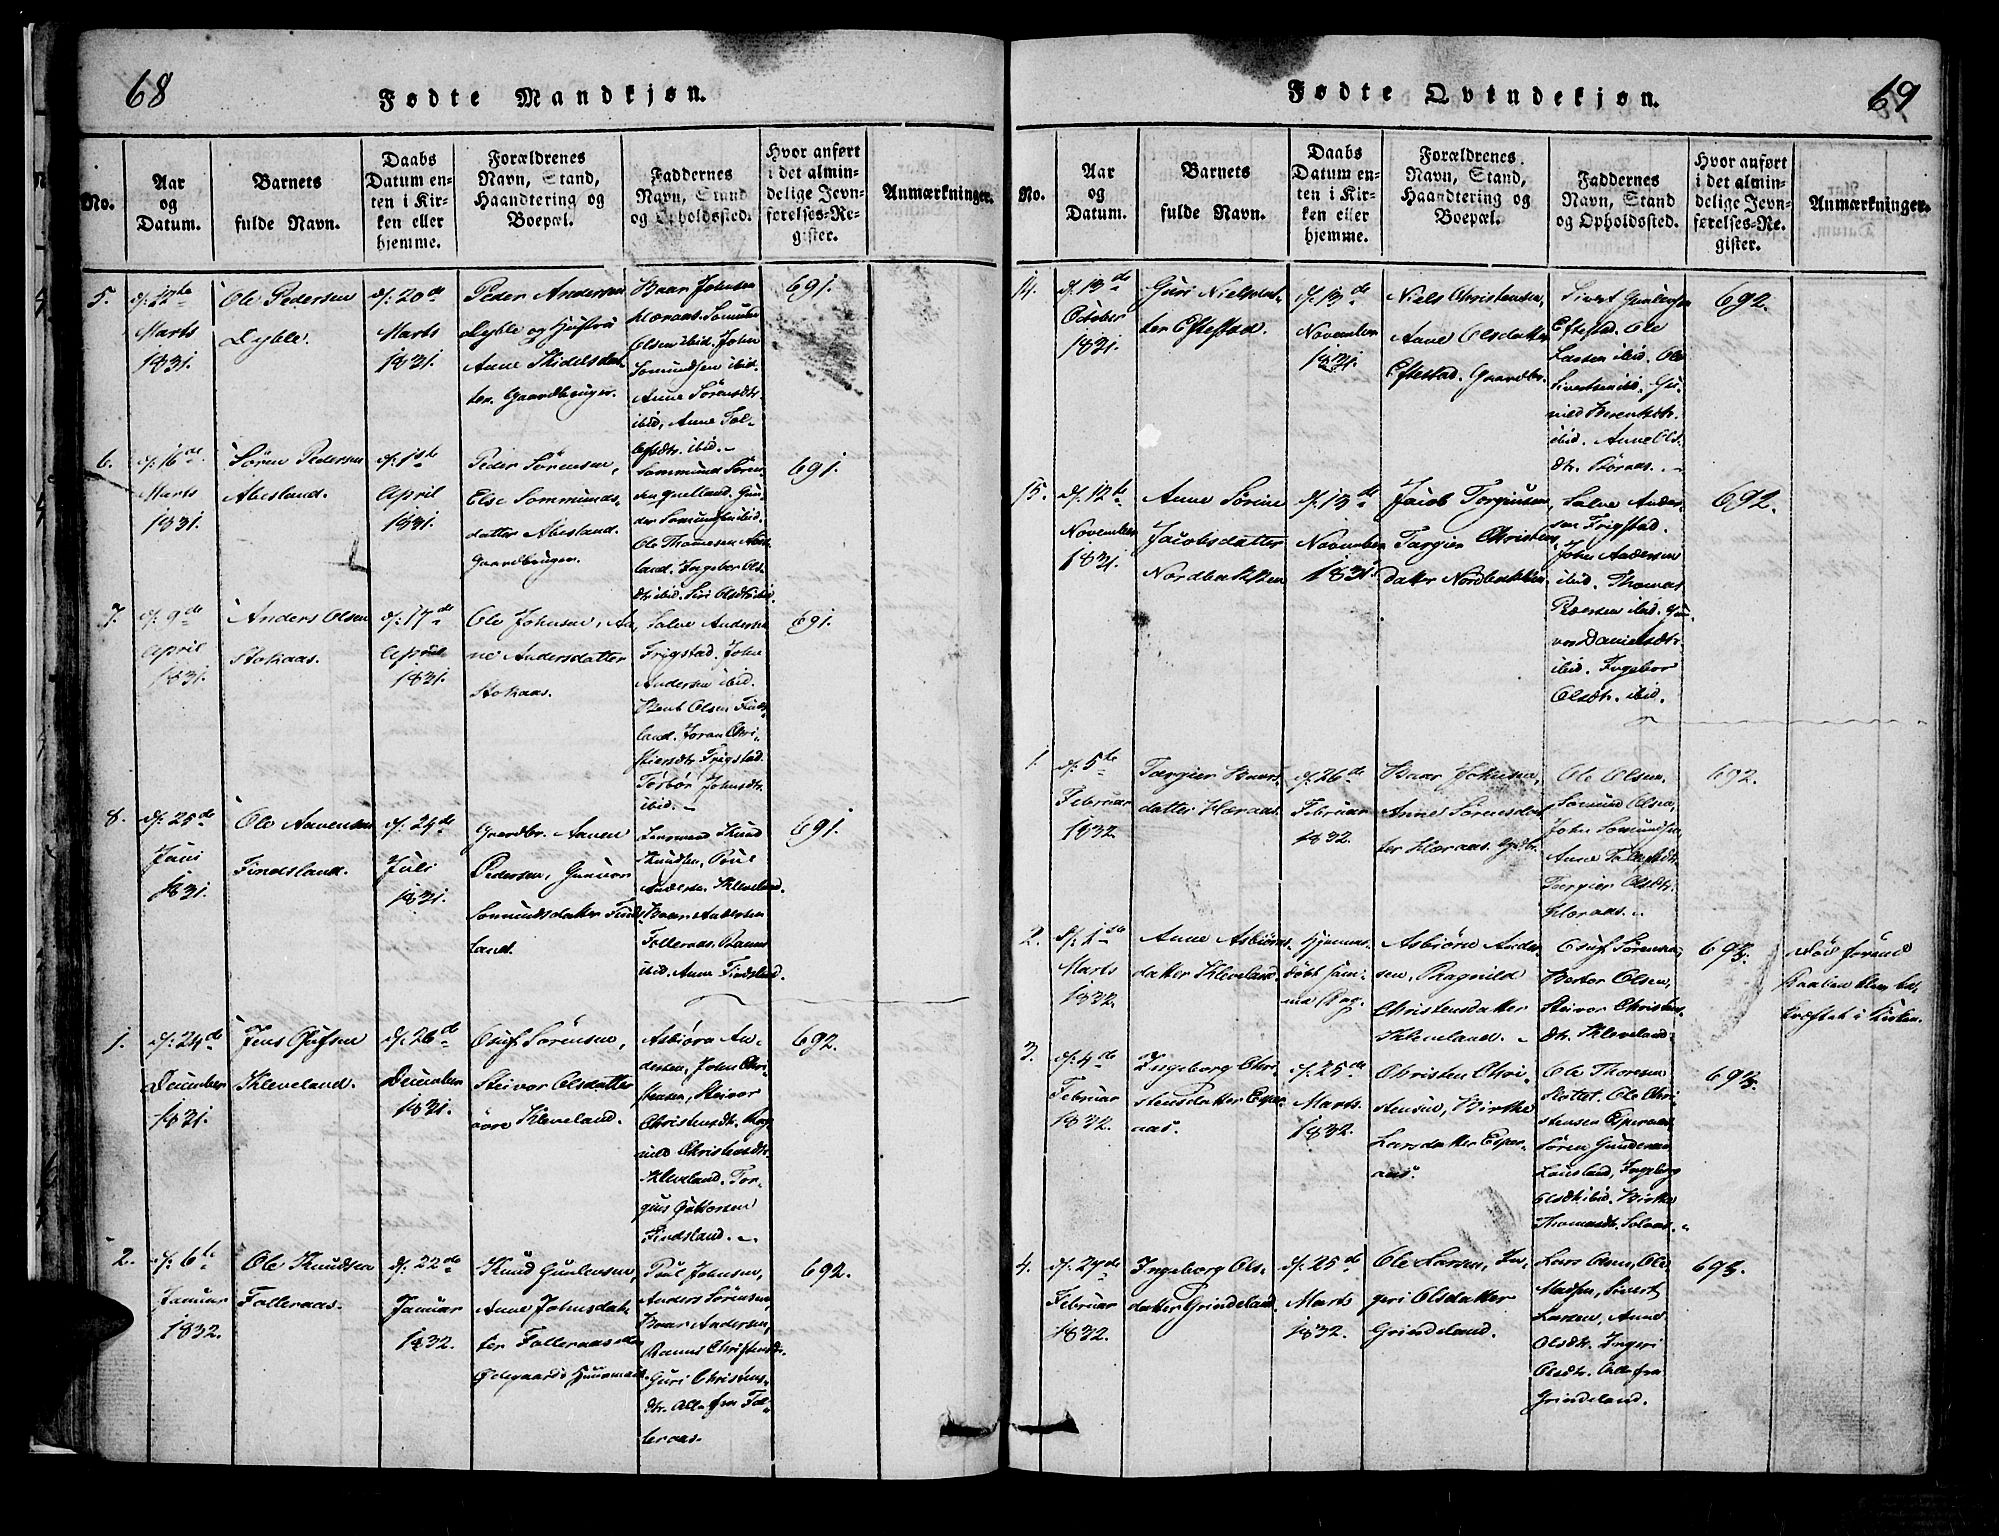 68
Fødte Mandkjøn.
No.
Aar
og
Datum.
Barnets
fulde Navn.
Daabs
Datum en-
ten i Kir-
ken eller
hjemme.
Forældrenes
Navn, Stand,
Haandtering og
Boepæl.
Faddernes
Navn, Stand
og Opholdssted.
Hvor anført
i det almin-
delige Jevn-
førelses-Re-
gister.
Anmærkninger.
5.
d: 17te
Marts
1831.
Ole Pedersen
Dyble.
d: 20de
Marts
1831.
Peder Andersen
Dyble og Hustru
Anne Kidelsdat-
ter. Gaardbruger.
Baar Johnsen
Haraas. Somund
Olsen ibid. John
Somundsen ibid.
Anne Sörensdtr.
ibid, Anne Tol-
lefsdtr. ibid.
691.
6.
d: 16de
Marts
1831.
Sören Pedersen
Abesland.
d: 1ste
April
1831.
Peder Sörensen,
Else Sommunds-
datter Abesland.
Gaardbruger.
Sommund Sören-
sen
der Somundsen ibid.
Ole Thomesen
land. Ingebor Ols-
dtr ibid. Siri Olsdtr ibid.
691.
7.
d: 9de
April
1831.
Anders Olsen
Stokaas.
d: 17de
April
1831.
Ole Johnsen, An-
ne Andersdatter
Stokaas.
Salve Andersen
Frigstad. John
Andersen ibid.
Bent Olsen Finds-
land. Joran Chri-
stensdtr. Frigstad.
Torbör Johnsdtr.
ibid.
691.
8.
d: 25de
Juni
1831.
Ole Aavensen
Findsland.
d: 24de
Juli
1831.
Gaardbr. Aaven
Pedersen, Gunvor
Somundsdatter Finds-
land.
Knud
Knudsen, Poul
Andersen Kleveland.
Baar Andersen
Folleraas. Raanne
ibid. Anne Findsland.
691.
1.
d: 24de
December
1831.
Jens Osufsen
Kleveland.
d: 26de
December
1831.
Osuf Sörensen,
Steivor Olsdatter
övre Kleveland.
Asbiörn An-
dersen, John Chri-
stensen, Steivor
Christensdtr. Rag-
nild Christensdtr.
Kleveland. Tor-
gius Guttorsen
Findsland.
692.
2.
d: 6te
Januar
1832.
Ole Knudsen
Folleraas.
d: 22de
Januar
1832.
Knud Gunlevsen,
Anne Johnsdat-
ter Folleraas eller
Ödegaards Huusmand
Poul Johnsen,
Anders Sörensen,
Baar Andersen,
Raanne Christensdtr.
Guri Christens-
dtr. Alle fra Fol-
leraas.
692.
69
Fødte Qvindekjøn.
No.
Aar
og
Datum.
Barnets
fulde Navn.
Daabs
Datum en-
ten i Kir-
ken eller
hjemme.
Forældrenes
Navn, Stand,
Haandtering og
Boepæl.
Faddernes
Navn, Stand
og Opholdssted.
Hvor anført
i det almin-
delige Jevn-
førelses-Re-
gister.
Anmærkninger.
14.
d: 13de
October
1831.
Guri Nielsdat-
ter Eftestad.
d: 13de
November
1831.
Niels Christensen,
Anne Olsdatter
Eftestad. Gaardbr.
Sivert Gunlevsen
Eftestad. Ole
Larsen ibid. Ole
Sivertsen ibid. Gu-
nild Berentsdtr.
ibid. Anne Ols-
dtr. Röraas.
692.
15.
d: 12te
November
1831.
Anne Sörine
Jacobsdatter
Nordbækken
d: 13de
November
1831.
Jacob Torgiusen,
Targier Christens-
datter Nordbækken
Salve Ander-
sen Frigstad.
John Andersen
ibid. Thomas
Pedersen ibid. Gun-
vor Danielsdtr.
ibid. Ingebor
Olsdtr. ibid.
692.
1.
d: 5te
Februar
1832.
Targier Baars-
datter Haraas.
d: 26de
Februar
1832.
Baar Johnsen,
Anne Sörensdat-
ter Haraas. Gdbr.
Ole Olsen.
Somund Olsen,
John Somundsen,
Anne Tollefsdtr.
Targier Olsdtr.
Haraas.
692.
2.
d: 1ste
Marts
1832.
Anne Asbiörns-
datter Kleveland.
Hjemme-
döbt sam-
me Dag.
Asbiörn Ander-
sen, Ragnild
Christensdatter
Kleveland.
Osuf Sörensen,
BerTor Olsen,
Steivor Christens-
dtr. Kleveland.
693.
Död förend
Daaben blev be-
kræftet i Kirken.
3.
d: 4de
Februar
1832.
Ingeborg Chri-
stensdatter Esper-
aas.
d: 25de
Marts
1832.
Christen Chri-
stensen, Birthe
Larsdatter Esper-
aas.
Ole Thoresen
Slottet. Ole Chri-
stensen Esperaas
Sören Gundersen
Lausland, Ingeborg
Olsdtr ibid. Birthe
Thomasdtr. Solaas.
693.
4.
d: 27de
Februar
1832.
Ingeborg Ols-
datter Grindeland.
d: 25de
Marts
1832.
Ole Larsen, In-
geri Olsdatter
Grindeland.
Lars Olsen, Ole
Madsen, Sivert
Larsen, Anne
Olsdtr. Ingeri
Olsdtr. Alle fra
Grindeland.
693.